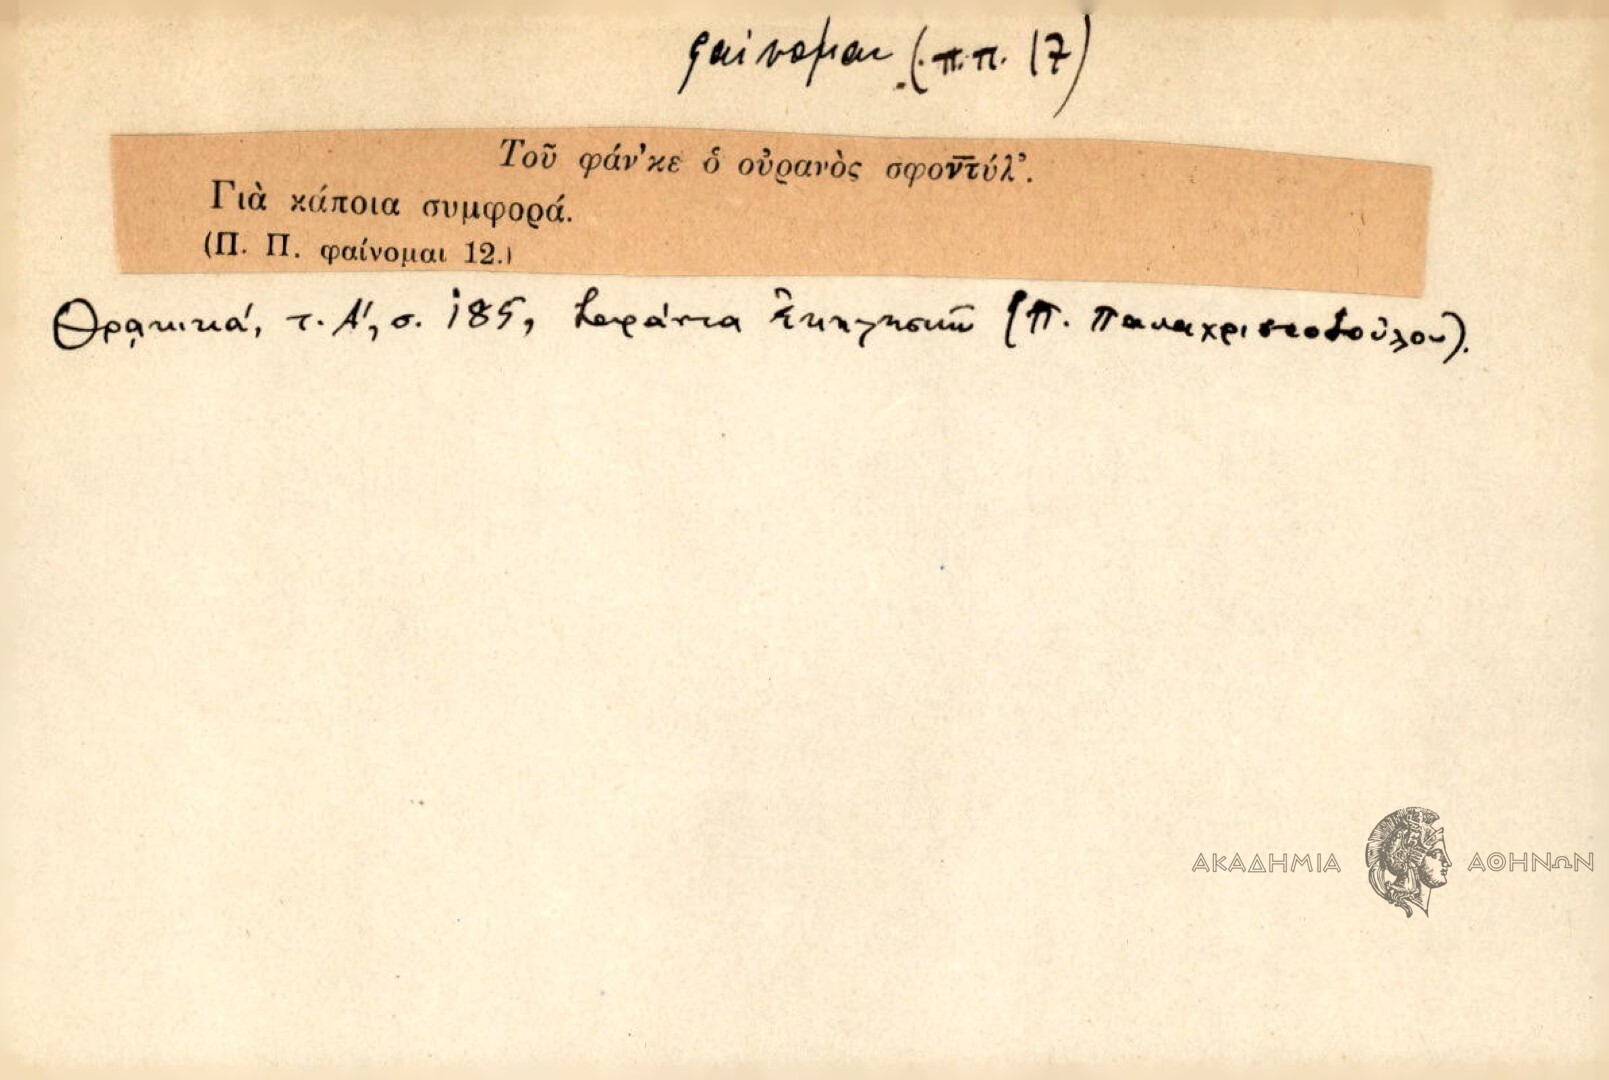 φαίνομαι (π.π. 17)
Τοῦ φάν'κε ὁ οὐρανὸς σφοντύλ'.
Γιὰ κάποια συμφορά.
(Π. Π. φαίνομαι 12.)
Θρᾳκικά, τ. Α', σ. 185, Σαράντα Ἐκκλησιῶν (Π. Παπαχριστοδούλου).
ΑΚΑΔΗΜΙΑ ΑΘΗΝΩΝ